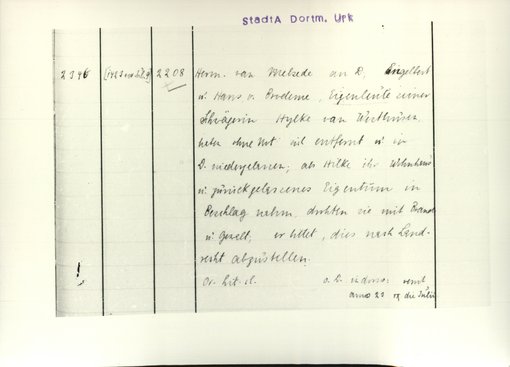 StadtA Dortm. Urk
2346 2208 Herm. van Melsede an D. Engelbert
u. Hans v. Bredeme, Eigenleute seiner
Schwägerin Hylke van
ohne Not entfernt u. in
D. niedergelassen; als Hilke ihr Wohnhaus
u. zurückgelassenes Eigentum in
Beschlag nahm, drohten sie mit Brand
u. Gewalt, er bittet, dies nach Land-
recht abzustellen.
!
Or. lit. cl. o. D. in dorso:
anno 23